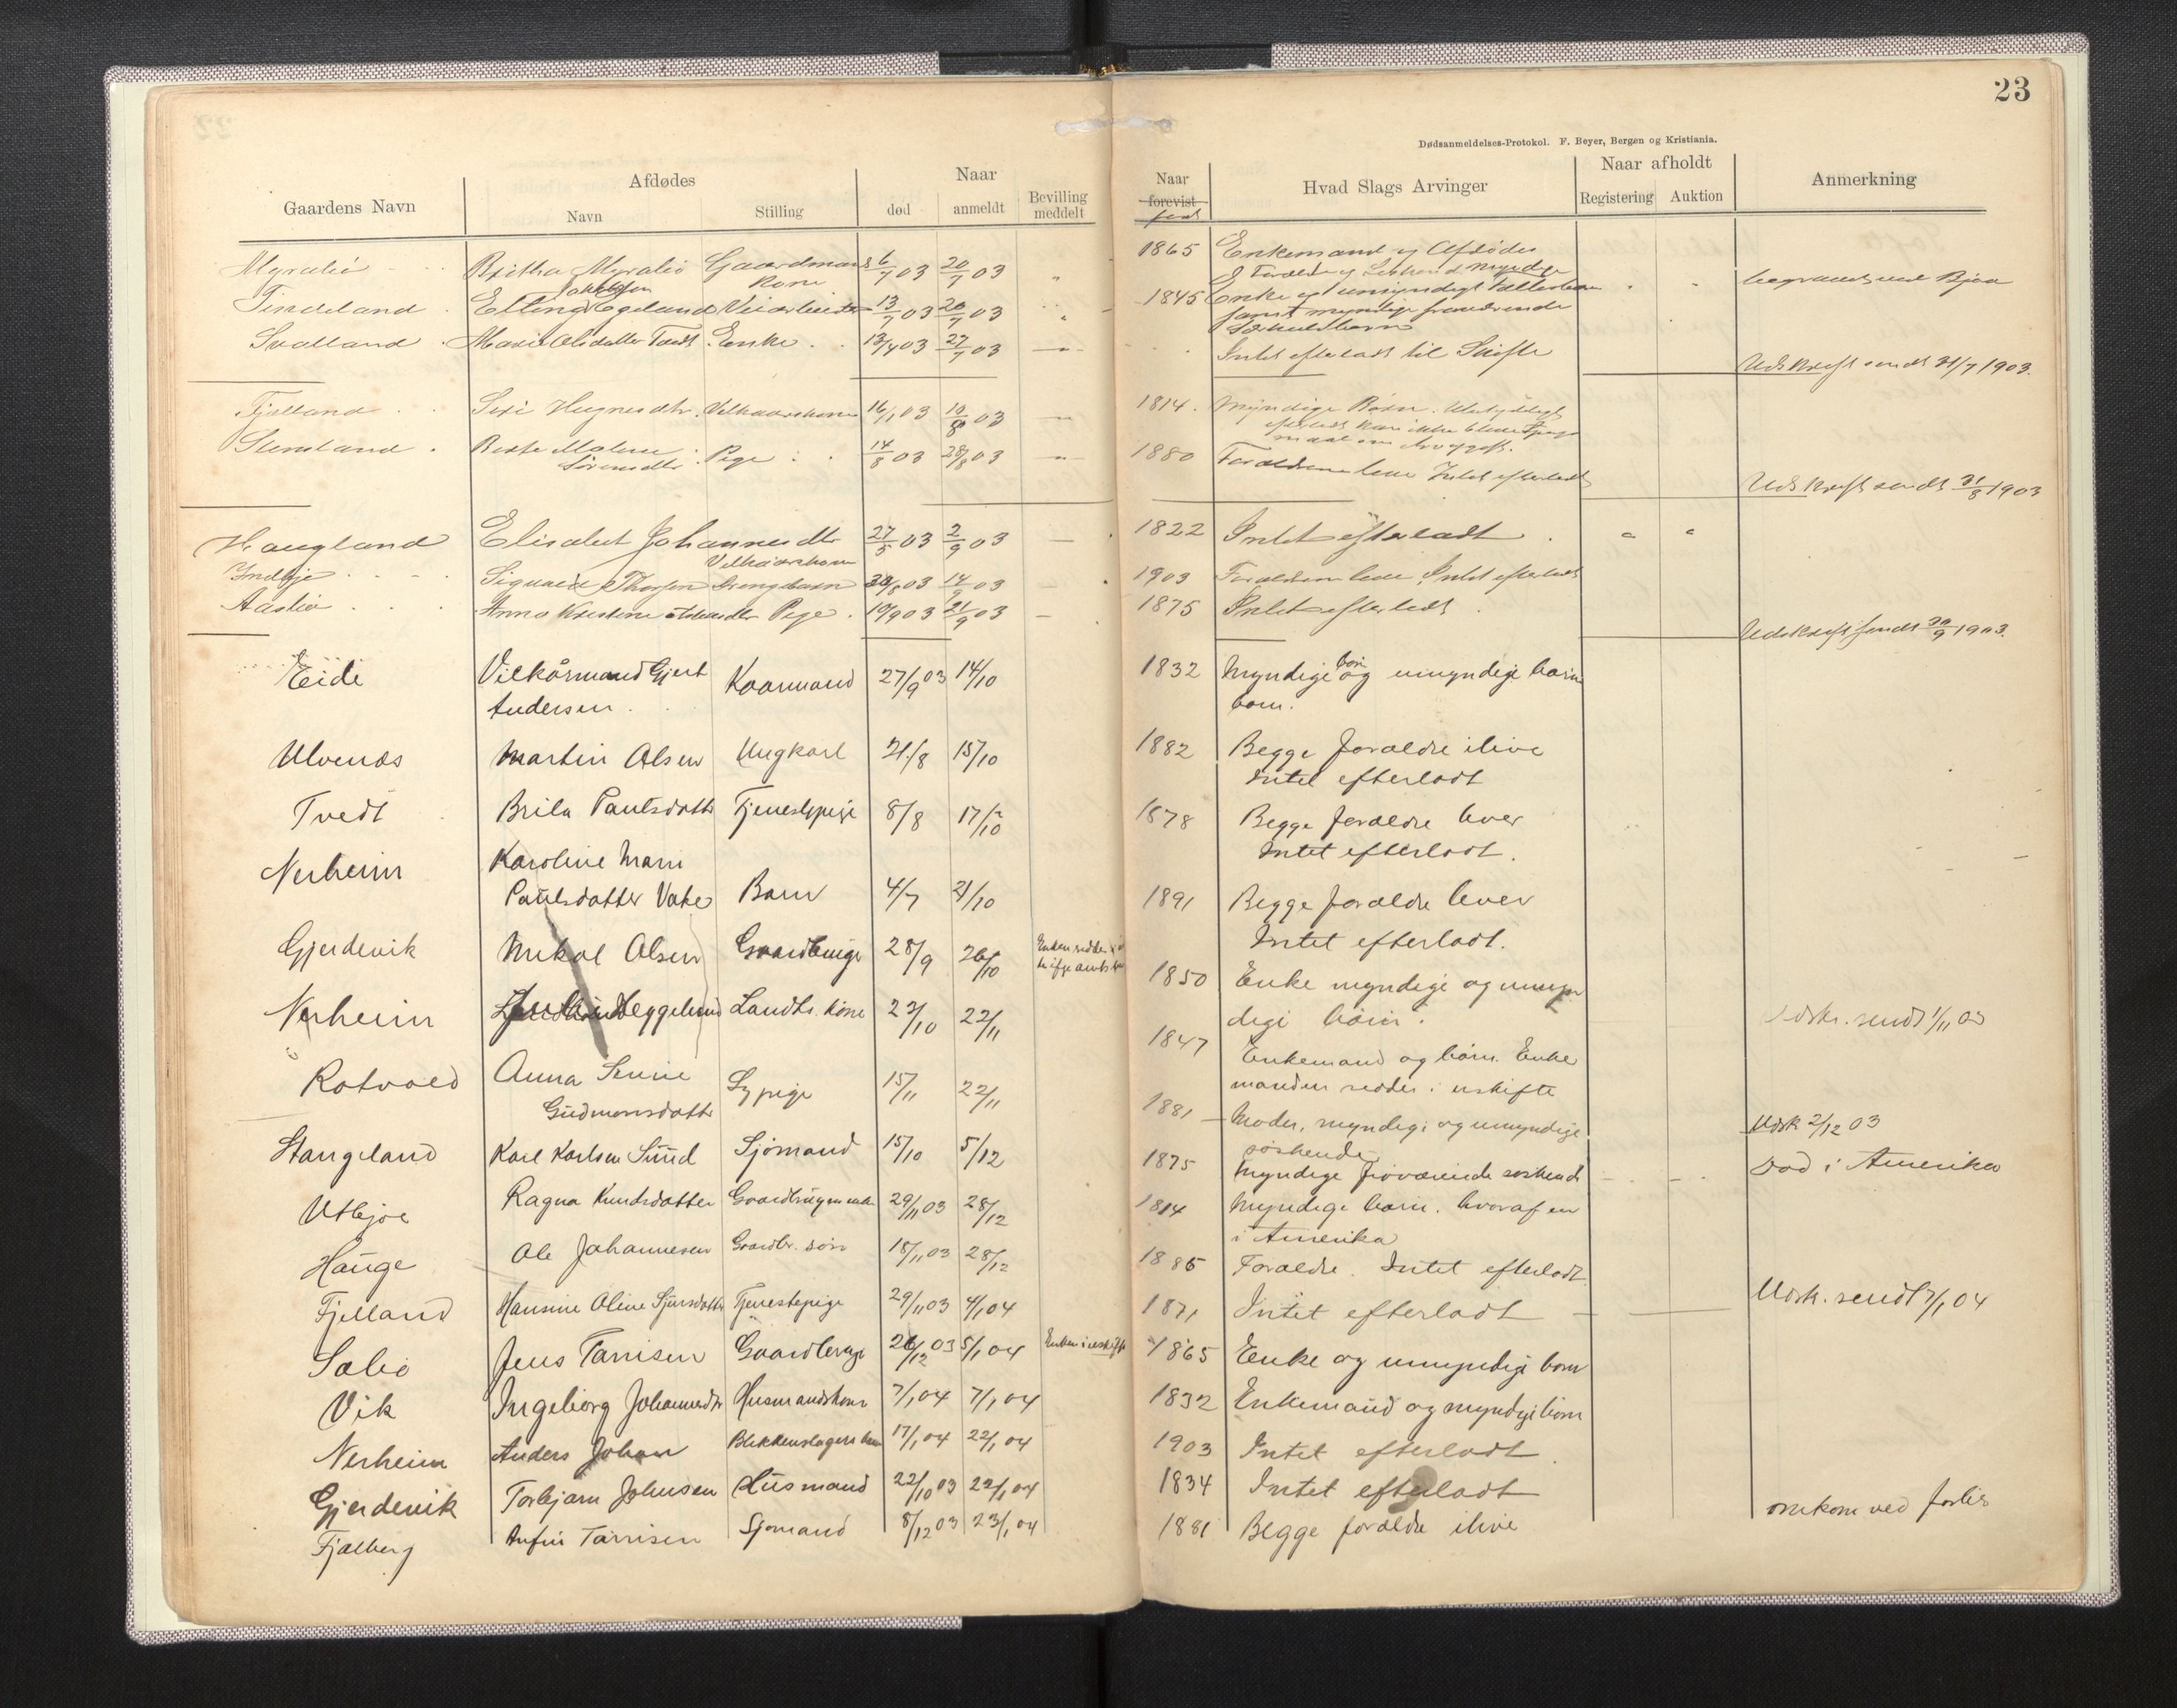 23
Dødsanmeldelses-Protokol. F. Beyer, Bergen og Kristiania.
Gaardens Navn
Afdødes
Navn
Stilling
Naar
død
anmeldt
Bevilling meddelt
Naar
forevist
født
Hvad Slags Arvinger
Naar afholdt
Registering
Auktion
Anmerkning
Myralié Britha Myralié Gaardmands 6/7 03 20/7 03 " 1865 Enkemand og Afdødes
Kone
Elling Egeland 13/7 03 20/7 03 " 1845 Enke og umyndigt
samt myndige fraværende
Svalland Enke 27/7 03 Intet efterladt til Skifte
Udskrift sendt 31/7 1903.
Fjælland 16/1 03 10/8 03 1814. Myndige Børn.
Pige 14/8 03 28/8 03 1880 Forældrene leve Intet efterladt
Udskrift sendt 31/8 1903
Haugland Elisabet Johannesdtr 27/5 03 2/9 03 1822 Intet efterladt
Sigvald Thorsen 14/9 03 1903 Forældrene leve, Intet efterladt
Pige 10/9 03 21/9 03 1875 Intet efterladt
Udskrift sendt 30/9 1903.
Eide Vilkårmand Gjert Kaarmand 27/9 03 14/10 1832 Myndige børn og umyndige barne
Andersen. born.
Ulvenæs Martin Olsen Ungkarl 21/8 15/10 1882 Begge forældre ilive
Intet efterladt
Tvedt Brita Paulsdatter Tjenestepige 8/8 17/10 1878 Begge forældre lever
Intet efterladt.
Nerheim Karoline Marie
Paulsdatter Vake Barn 4/7 21/10 1891 Begge forældre lever
Intet efterladt.
Gjerdevik Nikol Olsen Gaardbruger 28/9 26/10 1850 Enke myndige og umyn
digi børn.
Udskr. sendt 1/11 03
Nerheim Landh. kone 23/10 22/11 1847 Enkemand og børn. Enke
manden sidder i uskifte
Rotvold Anna Sypige 15/11 22/11 1881 Moder, myndige og umyndige
Gudmunsdatter søskende
Udsk 2/12 03
Stangeland Karl Karlsen Sund Sjømand 15/10 5/12 1875 Myndige fraværende søskende død i Amerika
Utbjoe Ragna Knudsdatter 29/11 03 28/12 1814 Myndige børn. hvoraf en
i Amerika
Hauge Ole Johannesen Gaardbr. søn 18/11 03 28/12 1885 Forældre. Intet efterladt
Fjelland Hansine Oline Sjursdatter Tjenestepige 29/11 03 4/1 04 1871 Intet efterladt
Udsk. sendt 7/1 04
Sælió Jens Tørrisen Gaardbruger 26/12 03 5/1 04 Enken i uskifte 1865 Enke og umyndige born
Vik Ingeborg Johannesdtr Husmandskone 7/1 04 7/1 04 1832 Enkemand og myndige børn
Nerheim Anders Johan Blikkenslagers barn 17/1 04 22/1 04 1903 Intet efterladt.
Gjerdevik Torbjørn Johnsen Husmand 22/10 03 22/1 04 1834 Intet efterladt
Fjælberg Anfin Tørrisen Sjømand 8/12 03 23/1 04 1881 Begge forældre ilive omkom ved forlis